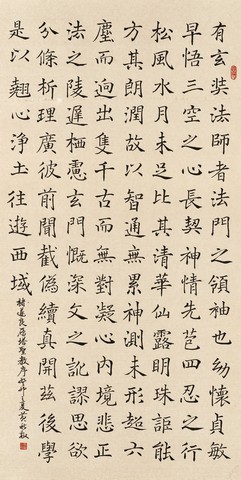 有玄奘法師者法門之領袖也幼懷貞敏
早悟三空之心長契神情先苞四忍之行
松風水月未足比其清華仙露明珠詎能
方其朗潤故以智通無累神測未形超六
塵而迥出隻千古而無對凝心內境悲正
法之陵遲栖慮玄門慨深文之訛謬思欲
分條析理廣彼前聞截偽續真開茲後學
是以翹心淨土往遊西域
褚遂良雁塔聖教序